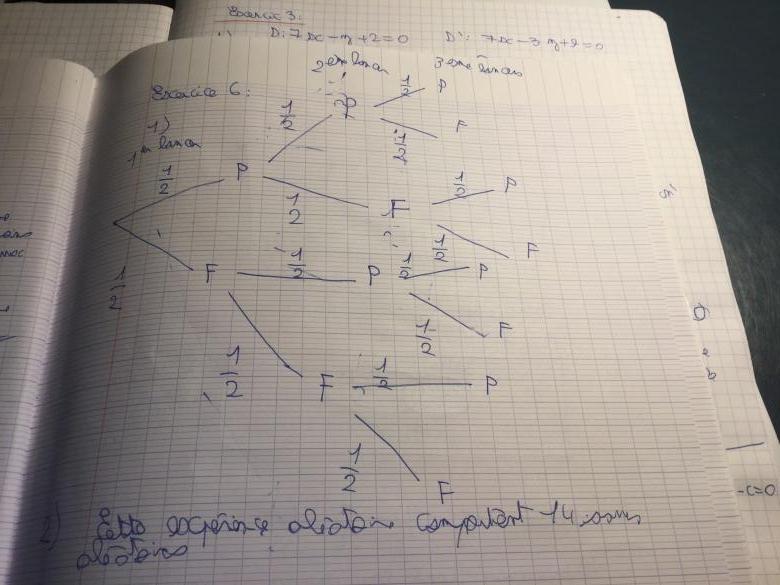 Exercice 3:
1) D: 7x - y + 2 = 0 D': 7x - 3y + 9 = 0
Exercice 6:
2ème lancer 3ème lancers
1)
1er lancer
1/2 P
1/2 P
1/2 P
1/2 F
1/2 F
1/2 P
1/2 F
1/2 F
1/2 P
1/2 P
1/2 F
1/2 F
1/2 P
1/2 F
2) Cette expérience aléatoire comportent 14 issues
aléatoires
-c=0